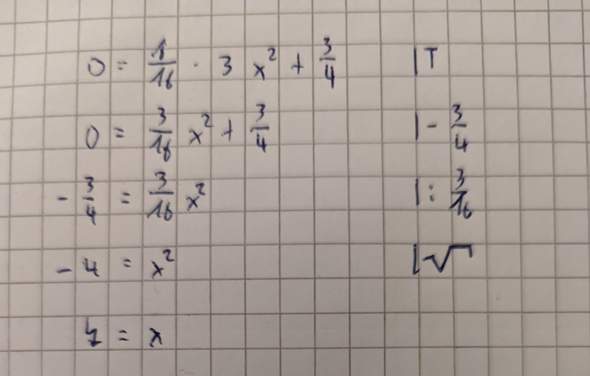 0 = 1/16 · 3 x² + 3/4 | T
0 = 3/16 x² + 3/4 | - 3/4
- 3/4 = 3/16 x² | : 3/16
- 4 = x² | √
↯ = x